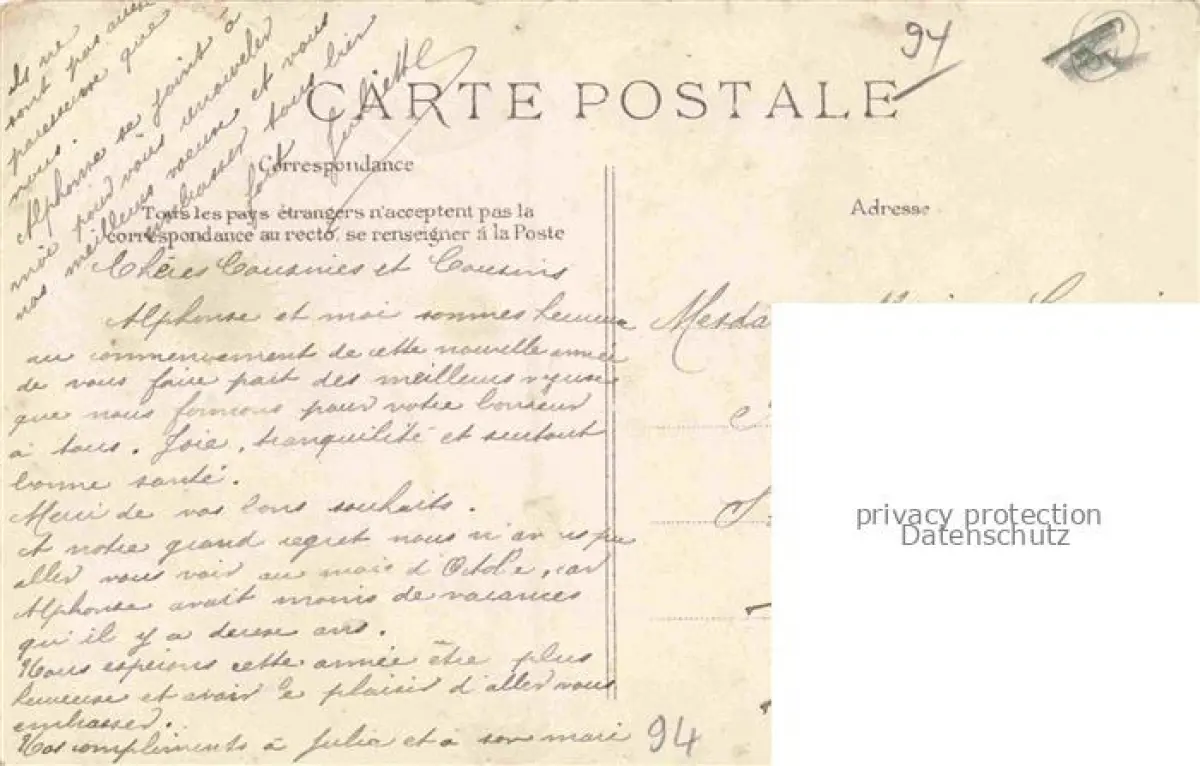 CARTE POSTALE
94
Correspondance
Tous les pays étrangers n'acceptent pas la
correspondance au recto, se renseigner á la Poste
Adresse
Chères Cousines et Cousins
Alphonse et moi sommes heureux
au commencement de cette nouvelle année
de vous faire part des meilleurs vœux
que nous formons pour votre bonheur
à tous. Joie, tranquilité et surtout
bonne santé.
Merci de vos bons souhaits.
A notre grand regret nous n'avons pu
aller vous voir au mois d'Octobre, car
Alphonse avait moins de vacances
qu'il y a deux ans.
Nous espérons cette année être plus
heureuse et avoir le plaisir d'aller vous
embrasser.
Nos compliments à Julia et à son mari
Ils ne
sont pas aussi
paresseux que
nous.
Alphonse se joint à
moi pour vous renouveler
nos meilleurs voeux et vous
embrasser tous bien
fort Juliette
Mesda
94
privacy protection
Datenschutz